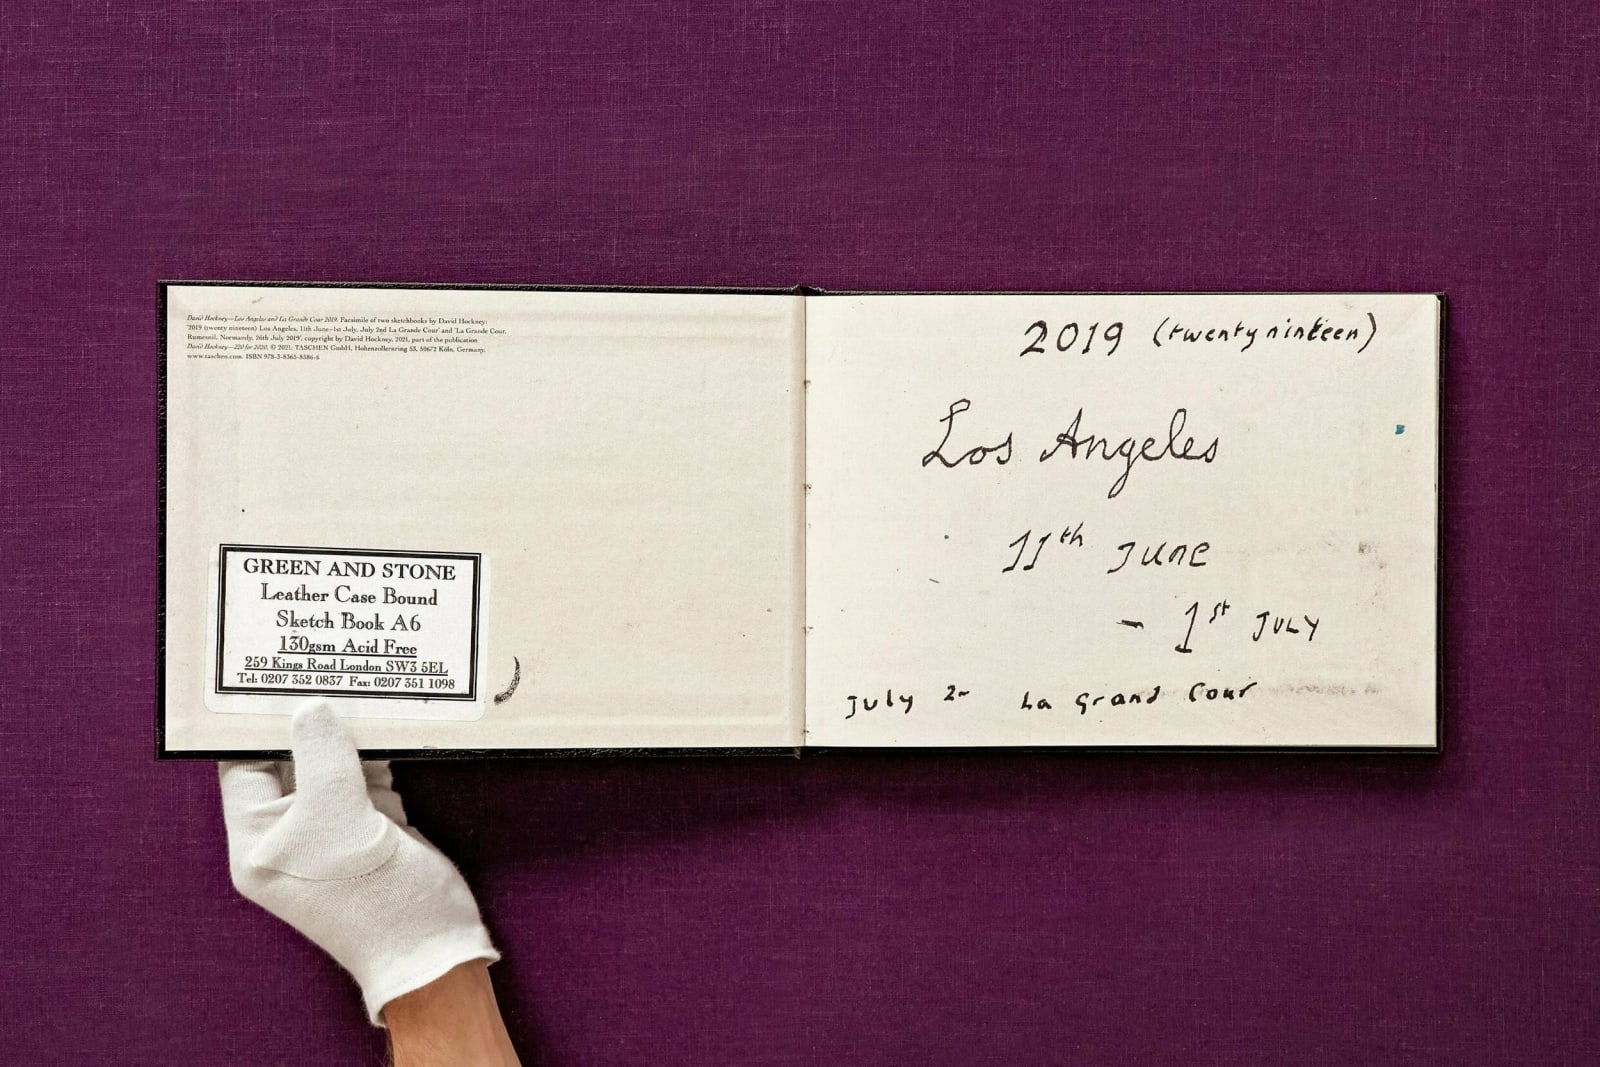 David Hockney—Los Angeles and La Grande Cour 2019. Facsimile of two sketchbooks by David Hockney:
'2019 (twenty nineteen) Los Angeles, 11th June–1st July, July 2nd La Grande Cour' and 'La Grande Cour,
Rumesnil, Normandy, 26th July 2019', copyright by David Hockney, 2021, part of the publication
David Hockney—220 for 2020. © 2021: TASCHEN GmbH, Hohenzollernring 53, 50672 Köln, Germany,
www.taschen.com. ISBN 978-3-8365-8386-6
GREEN AND STONE
Leather Case Bound
Sketch Book A6
130gsm Acid Free
259 Kings Road London SW3 5EL
Tel: 0207 352 0837 Fax: 0207 351 1098
2019 (twenty nineteen)
Los Angeles
11th JUNE
- 1st JULY
July 2- La Grand Cour